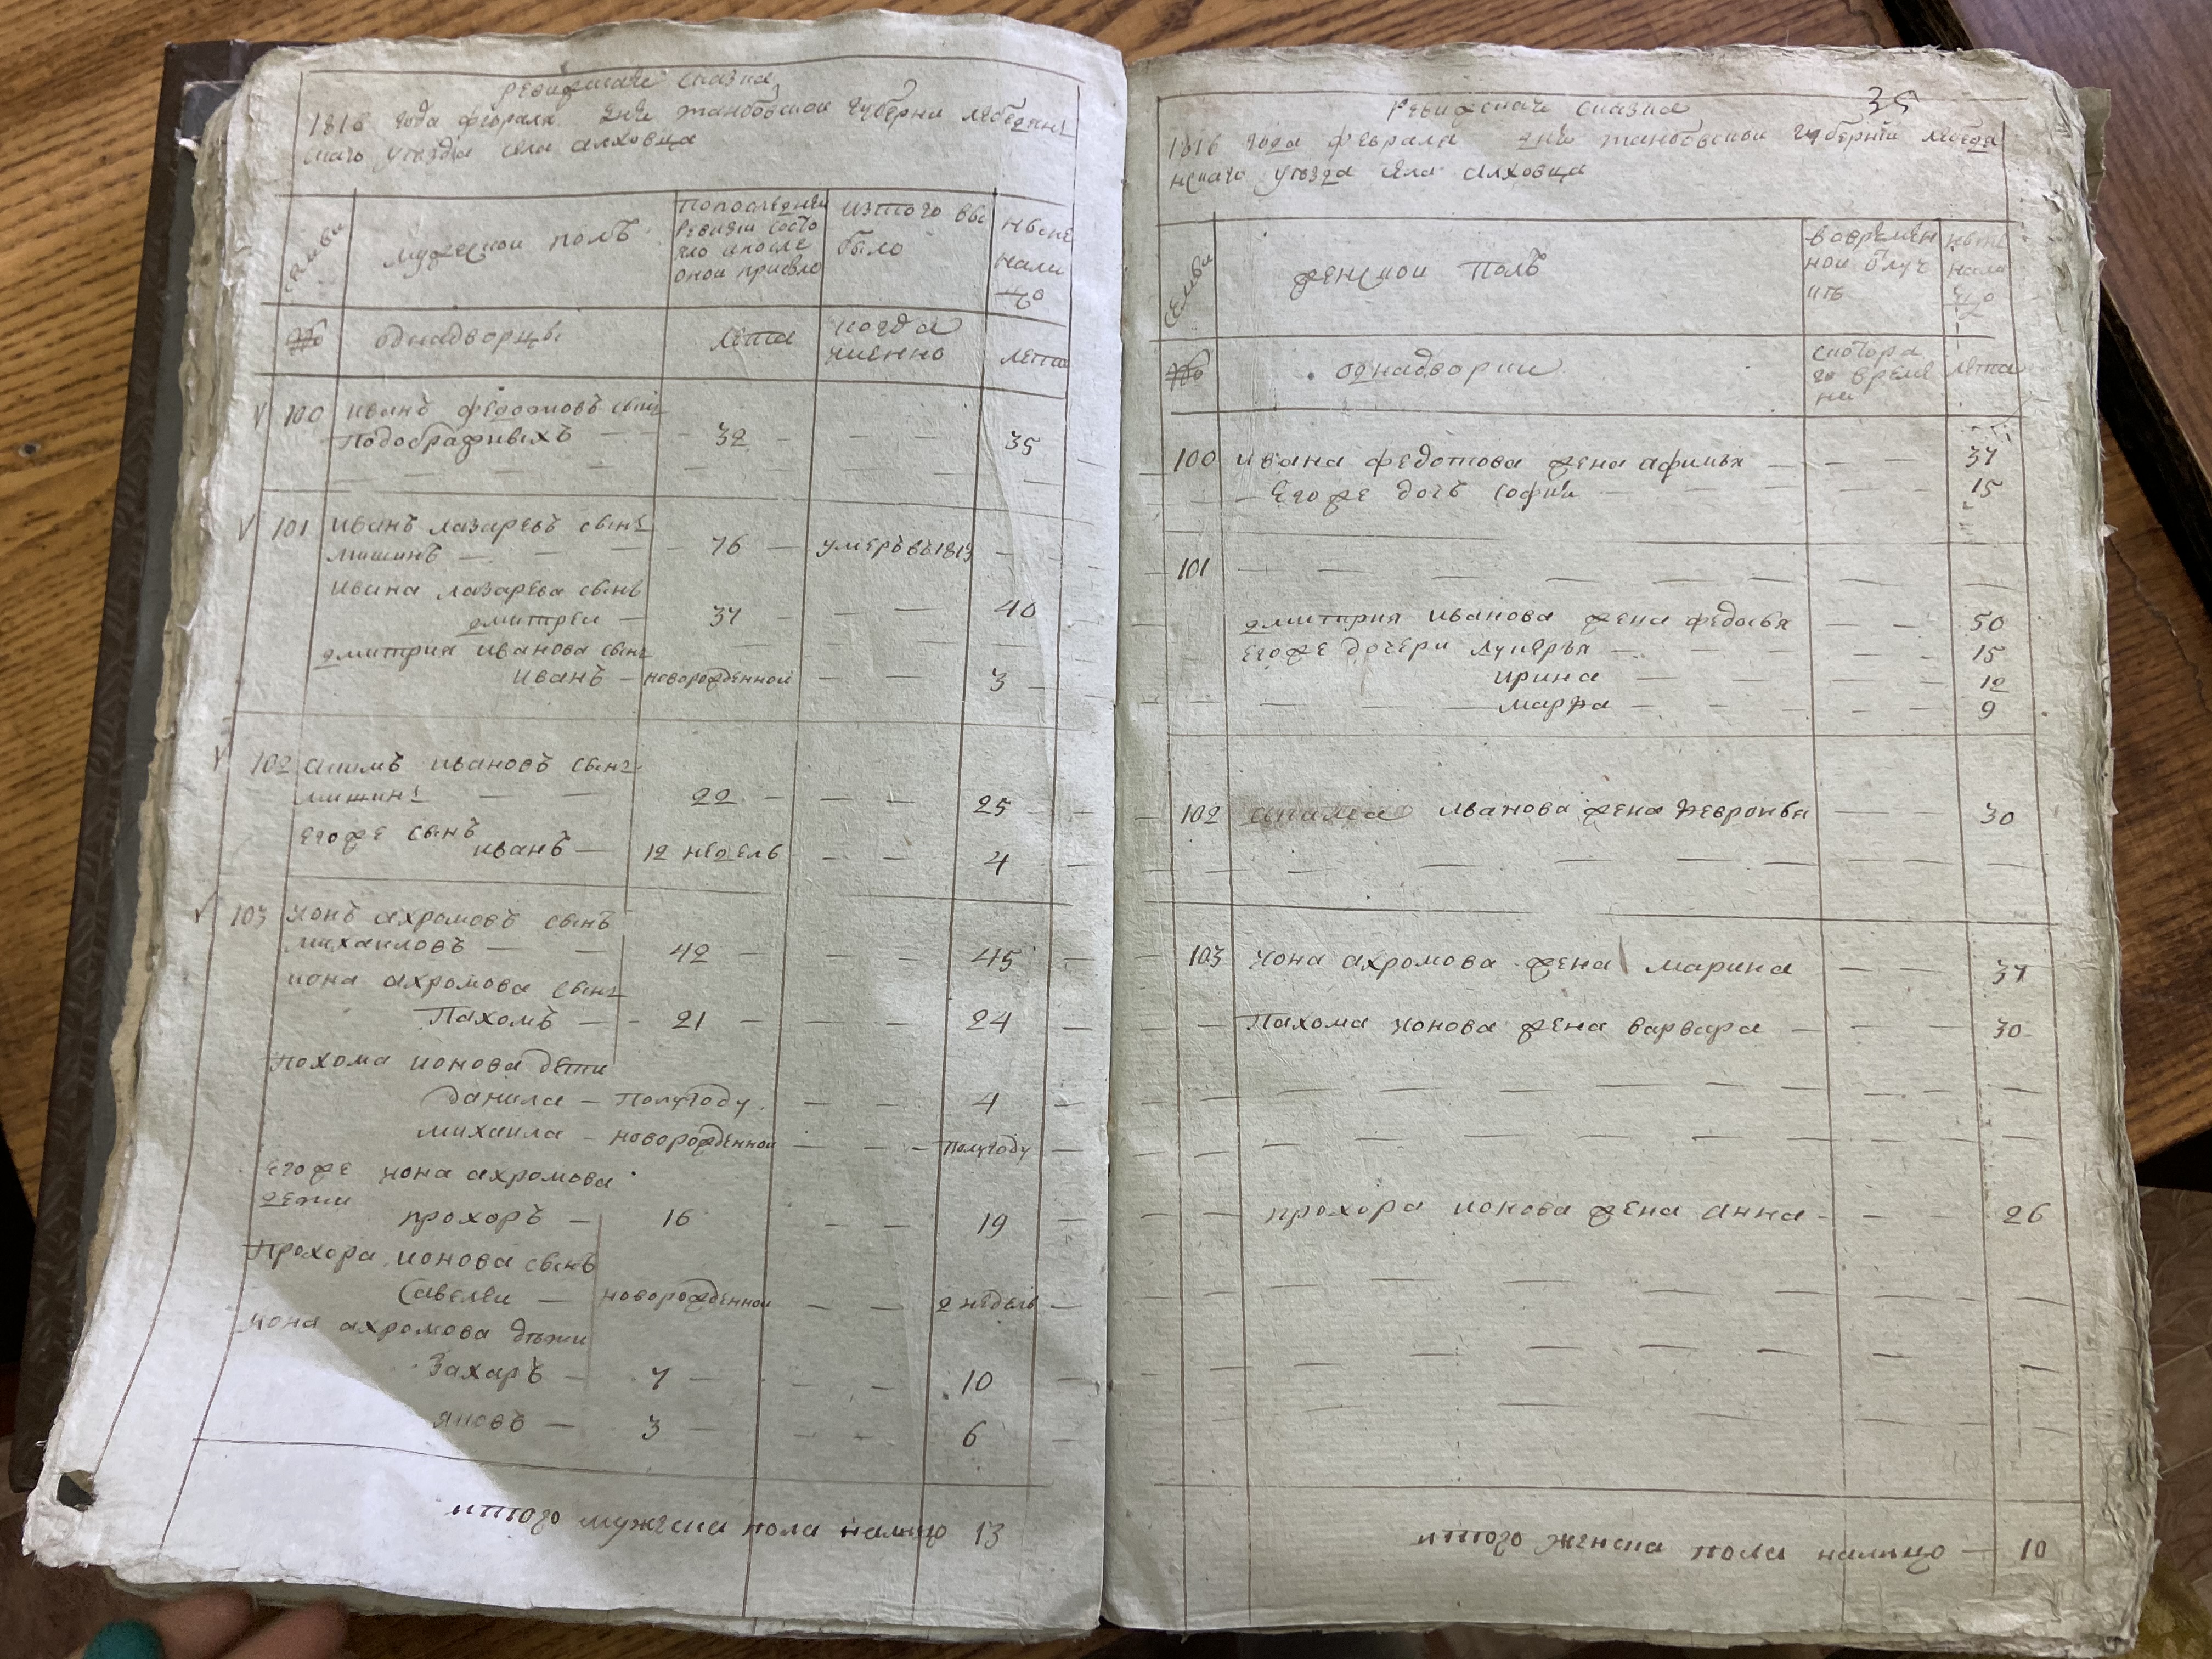 ревизская сказка
1816 года февраля дня танбовской губерни лебедян
скаго уезда села алховца
семьи
мужеской полъ
попоследней
ревизи состо
яло ипосле
оной прибыло
изтого вы
было
ныне
нали
цо
однадворцы
лета
когда
именно
лета
100 иванъ федотовъ сынъ
Подображныхъ — 32 — — — 35
101 иванъ лазаревъ сынъ
мишинъ — 76 — умеръвъ1813 —
ивана лазарева сынъ
дмитреи — 37 — — — 40
дмитрия иванова сынъ
иванъ — новорожденной — — 3
102 акимъ ивановъ сынъ
мишинъ — 22 — — — 25
Егоже сынъ
иванъ — 12 недель — — 4
103 ионъ ахромовъ сынъ
михаиловъ — 42 — — — 45
иона ахромова сынъ
Пахомъ — 21 — — — 24
похома ионова дети
данила — полугоду — — 4
михаила — новорожденной — — полугоду
Егоже иона ахромова
дети
прохоръ — 16 — — 19
Прохора ионова сынъ
Савелеи — новорожденной — — 2 недель
иона ахромова дети
Захаръ — 7 — — — 10
яковъ — 3 — — — 6
иттого мужеска пола налицо 13
35
Ревизская сказка
1816 года февраля дня танбовской губернии лебедя
нскаго уезда села алховца
семьи
женской полъ
вовремен
ной отлуч
ке
ныне
нали
цо
однадворки
скотора
го време
ни
лета
100 ивана федотова жена афимья — — — 37
Егоже дочь софия — — — 15
101
дмитрия иванова жена федосья — — 50
Егоже дочери лукерья — — — 15
ирина — — — 12
марфа — — — 9
102 иванова жена февронья — — 30
103 иона ахромова жена марина — — 37
Пахома ионова жена варвара — — 30
прохора ионова жена анна — — 26
иттого женска пола налицо — 10